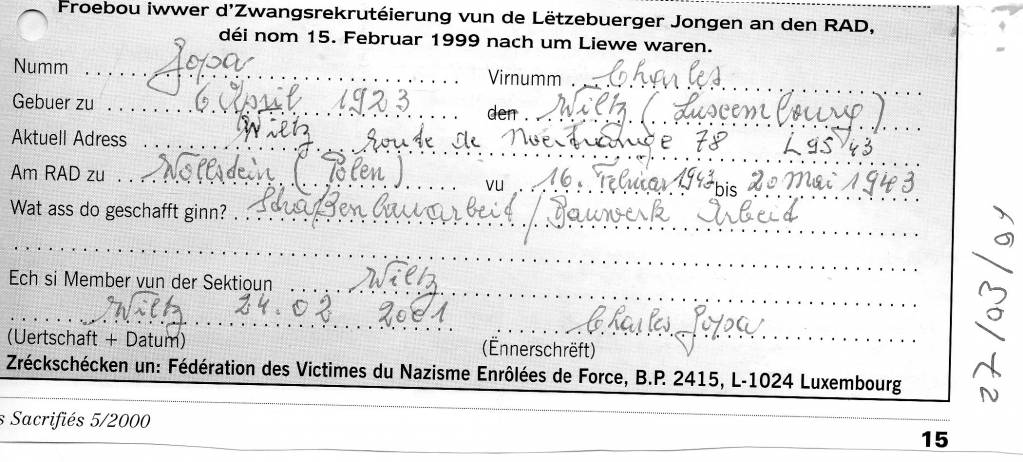 Froebou iwwer d'Zwangsrekrutéierung vun de Lëtzebuerger Jongen an den RAD,
déi nom 15. Februar 1999 nach um Liewe waren.
Numm Jopa Virnumm Charles
Gebuer zu 6 April 1923 den Wiltz (Luxembourg)
Aktuell Adress Wiltz Route de Noertrange 78 L 9543
Am RAD zu Wollstein (Polen) vu 16. Februar 1943 bis 20 Mai 1943
Wat ass do geschafft ginn? Straßenbauarbeit / Bauwerk Arbeit
Ech si Member vun der Sektioun Wiltz
Wiltz 24.02 2001 Charles Jopa
(Uertschaft + Datum) (Ënnerschrëft)
Zréckschécken un: Fédération des Victimes du Nazisme Enrôlées de Force, B.P. 2415, L-1024 Luxembourg
s Sacrifiés 5/2000
15
27/03/01